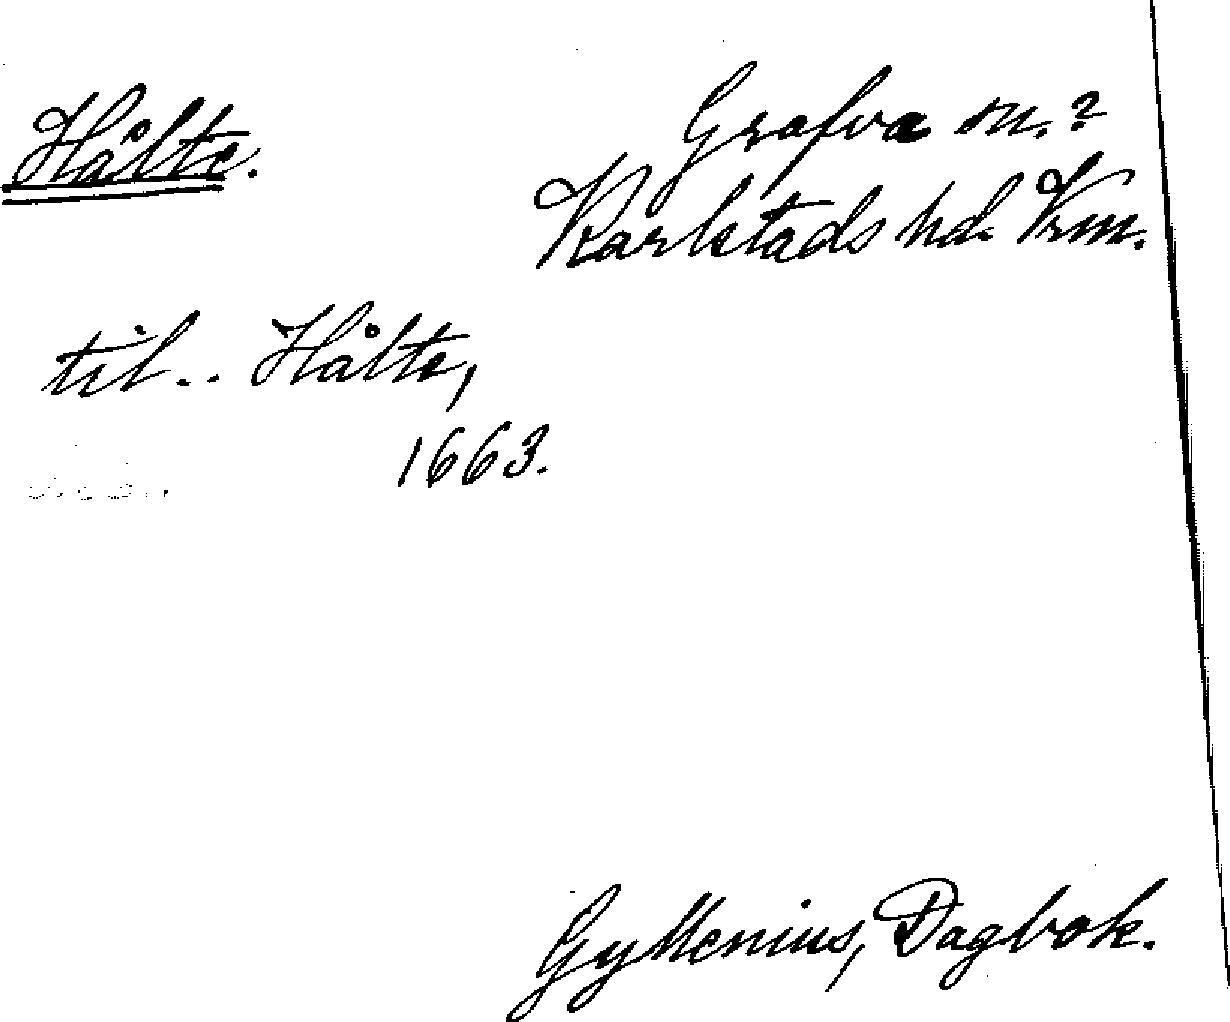 Hålte.
Grafva sn.?
Karlstads hd. Vrm.
til .. Hålte,
1663.
Gyllenius, Dagbok.